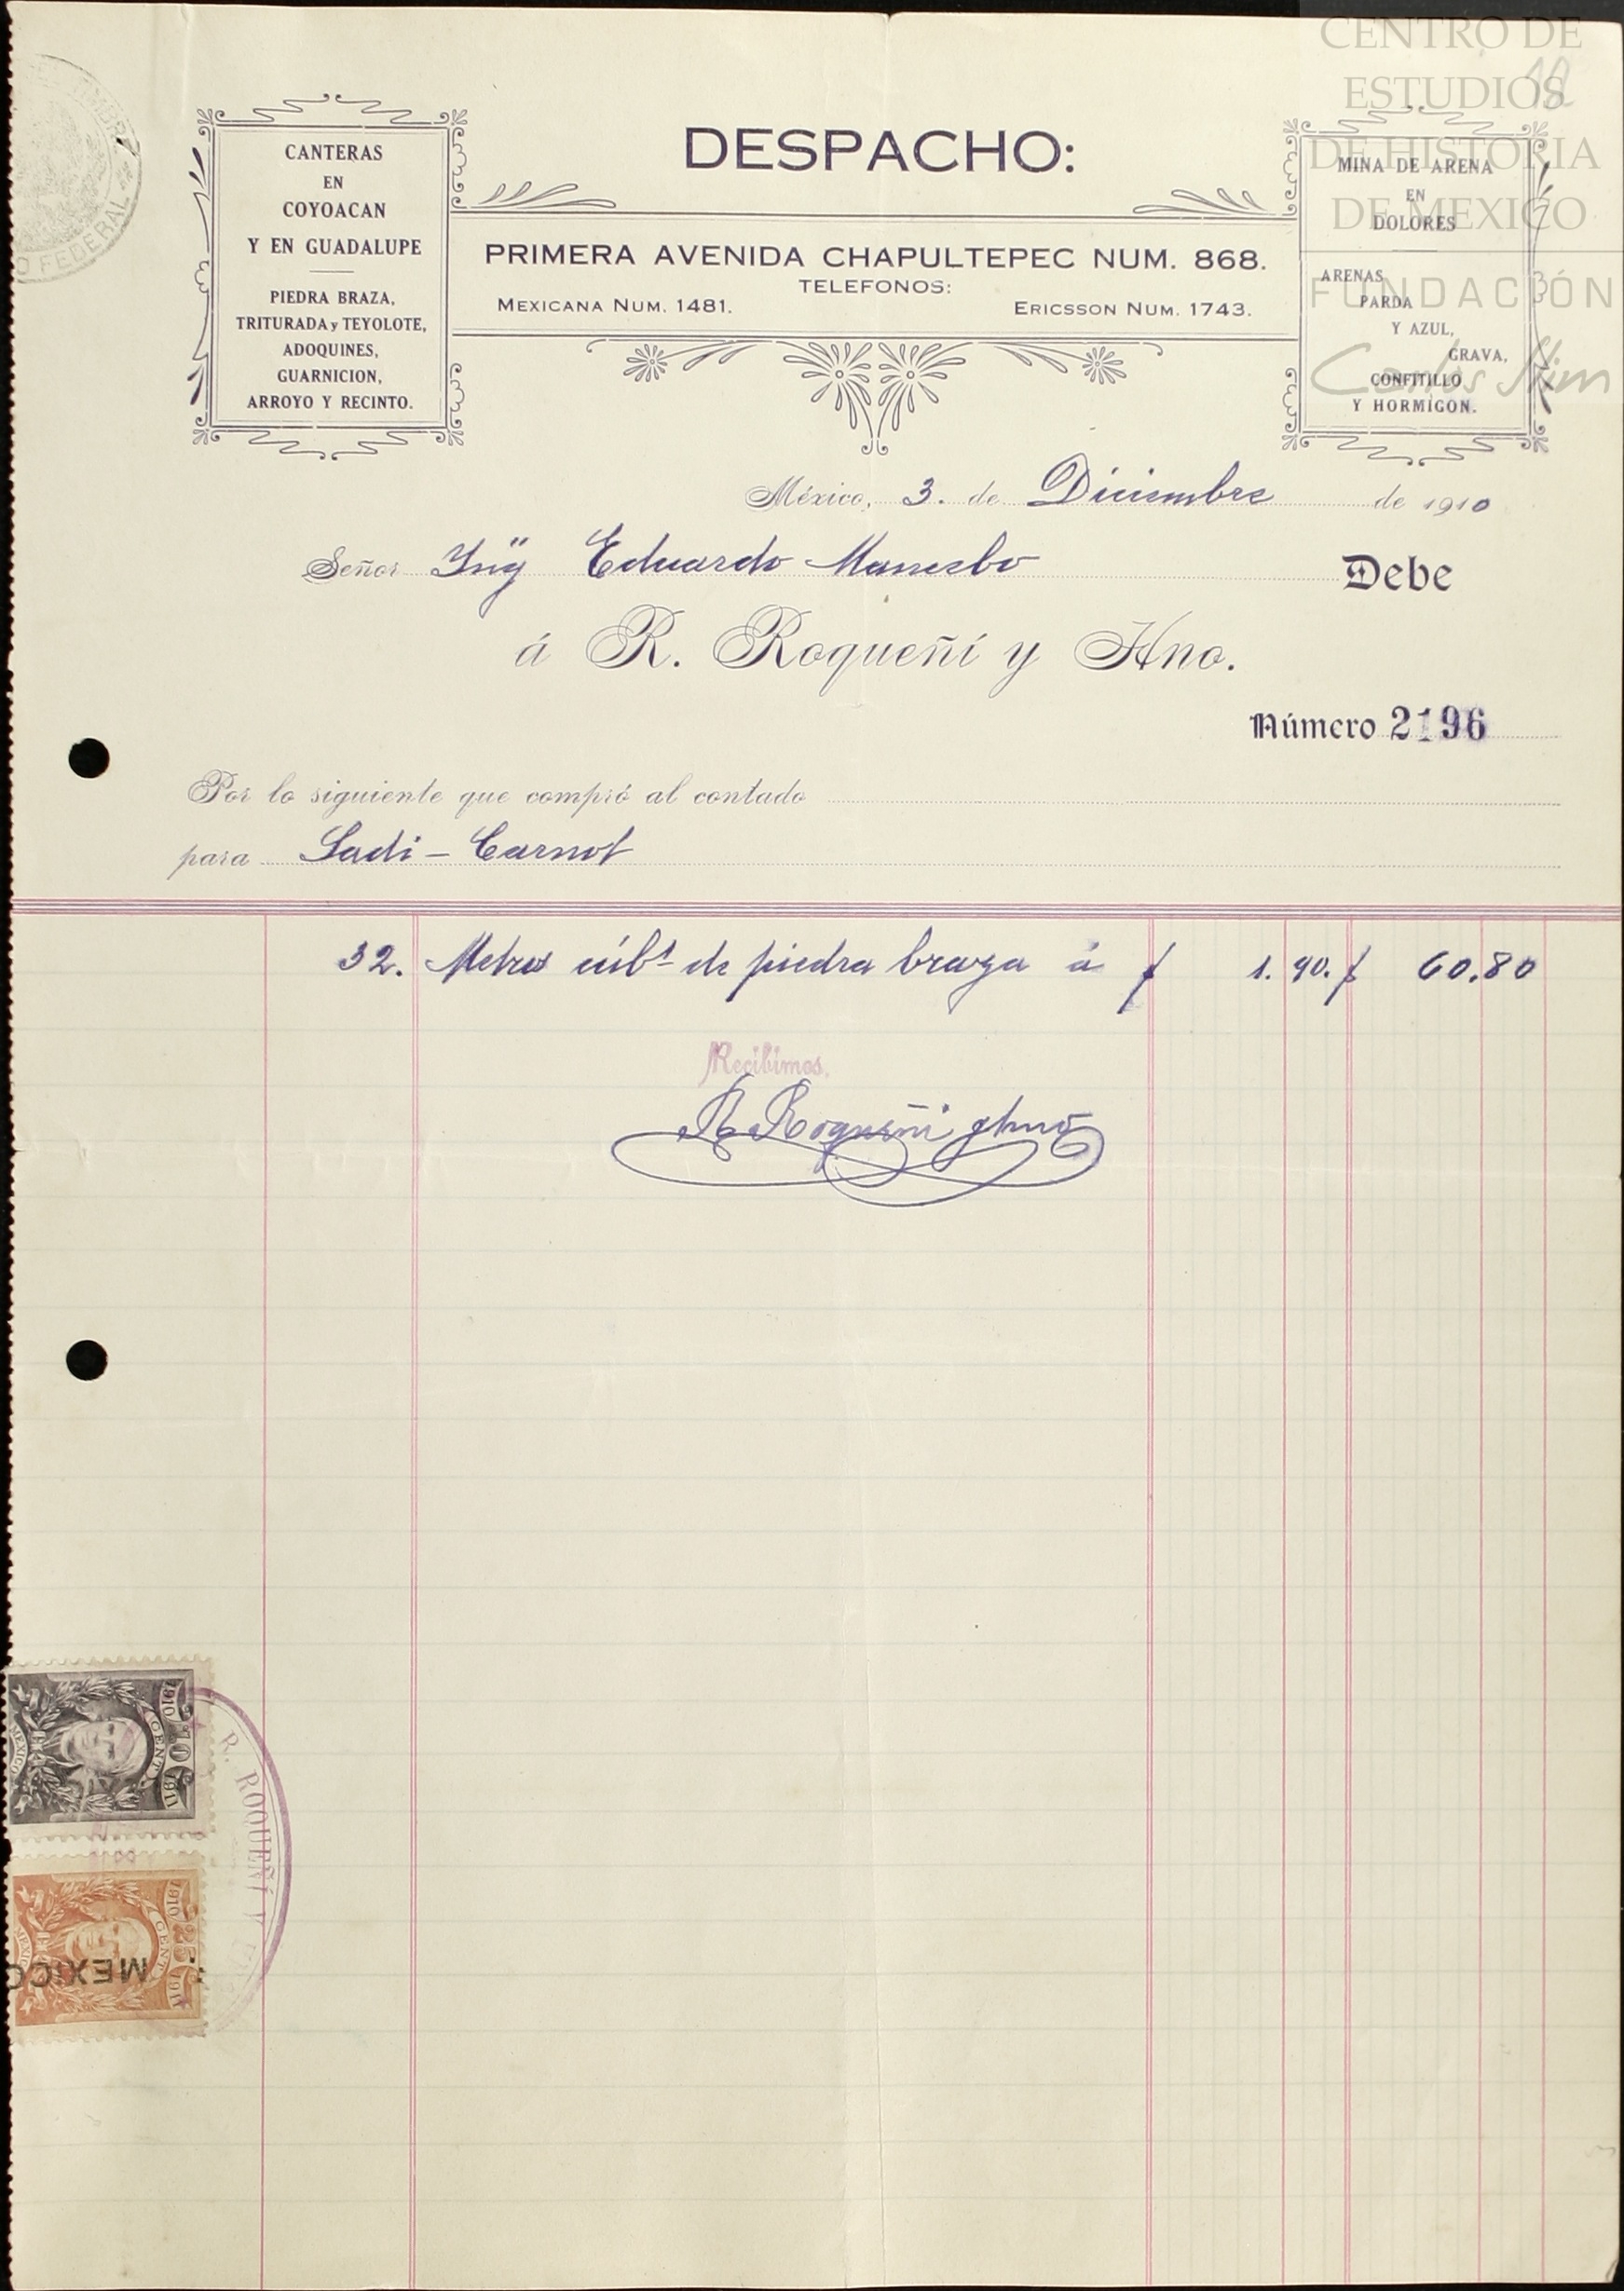 CENTRO DE
ESTUDIOS
DE HISTORIA
DE MEXICO
FUNDACIÓN
Carlos Slim
18
O FEDERAL
CANTERAS
EN
COYOACAN
Y EN GUADALUPE
PIEDRA BRAZA,
TRITURADA y TEYOLOTE,
ADOQUINES,
GUARNICION,
ARROYO Y RECINTO.
DESPACHO:
PRIMERA AVENIDA CHAPULTEPEC NUM. 868.
TELEFONOS:
MEXICANA NUM. 1481. ERICSSON NUM. 1743.
MINA DE ARENA
EN
DOLORES
ARENAS
PARDA
Y AZUL,
GRAVA,
CONFITILLO
Y HORMIGON.
México, 3. de Diciembre de 1910
Señor Ing Eduardo Debe
á R. Roqueñí y Hno.
Número 2196
Por lo siguiente que compró al contado
para Sadi - Carnot
32. Metros cúbs de piedra braza á $ 1.90. $ 60.80
Recibimos,
R. Roqueñi y Hno
R. ROQUEÑI Y
1910 CENT 10 1911
MEXICO
1910 CENT 1911
MEXICO